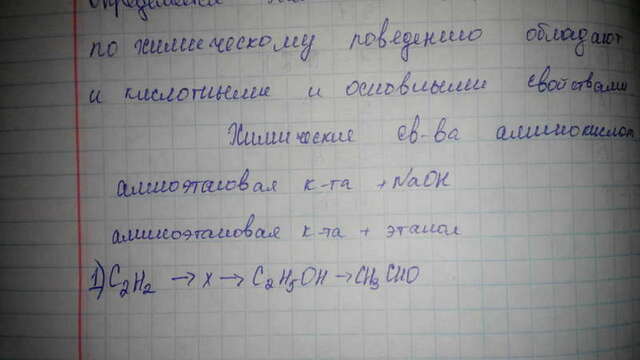 по химическому поведению обладают
и кислотными и основными свойствами
Химические св-ва аминокислот
амиоэтановая к-та + NaOH
аминоэтановая к-та + этанол
1) C₂H₂ → x → C₂H₅OH → CH₃CHO